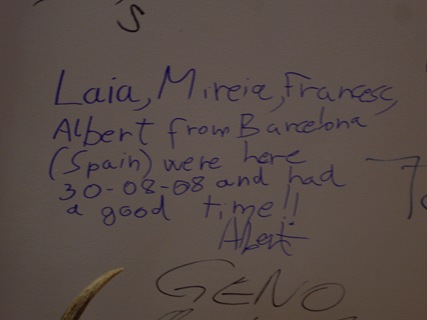 S
Laia, Mireia, Francesc,
Albert from Barcelona
(Spain) were here
30-08-08 and had
a good time!!
Albert
GENO